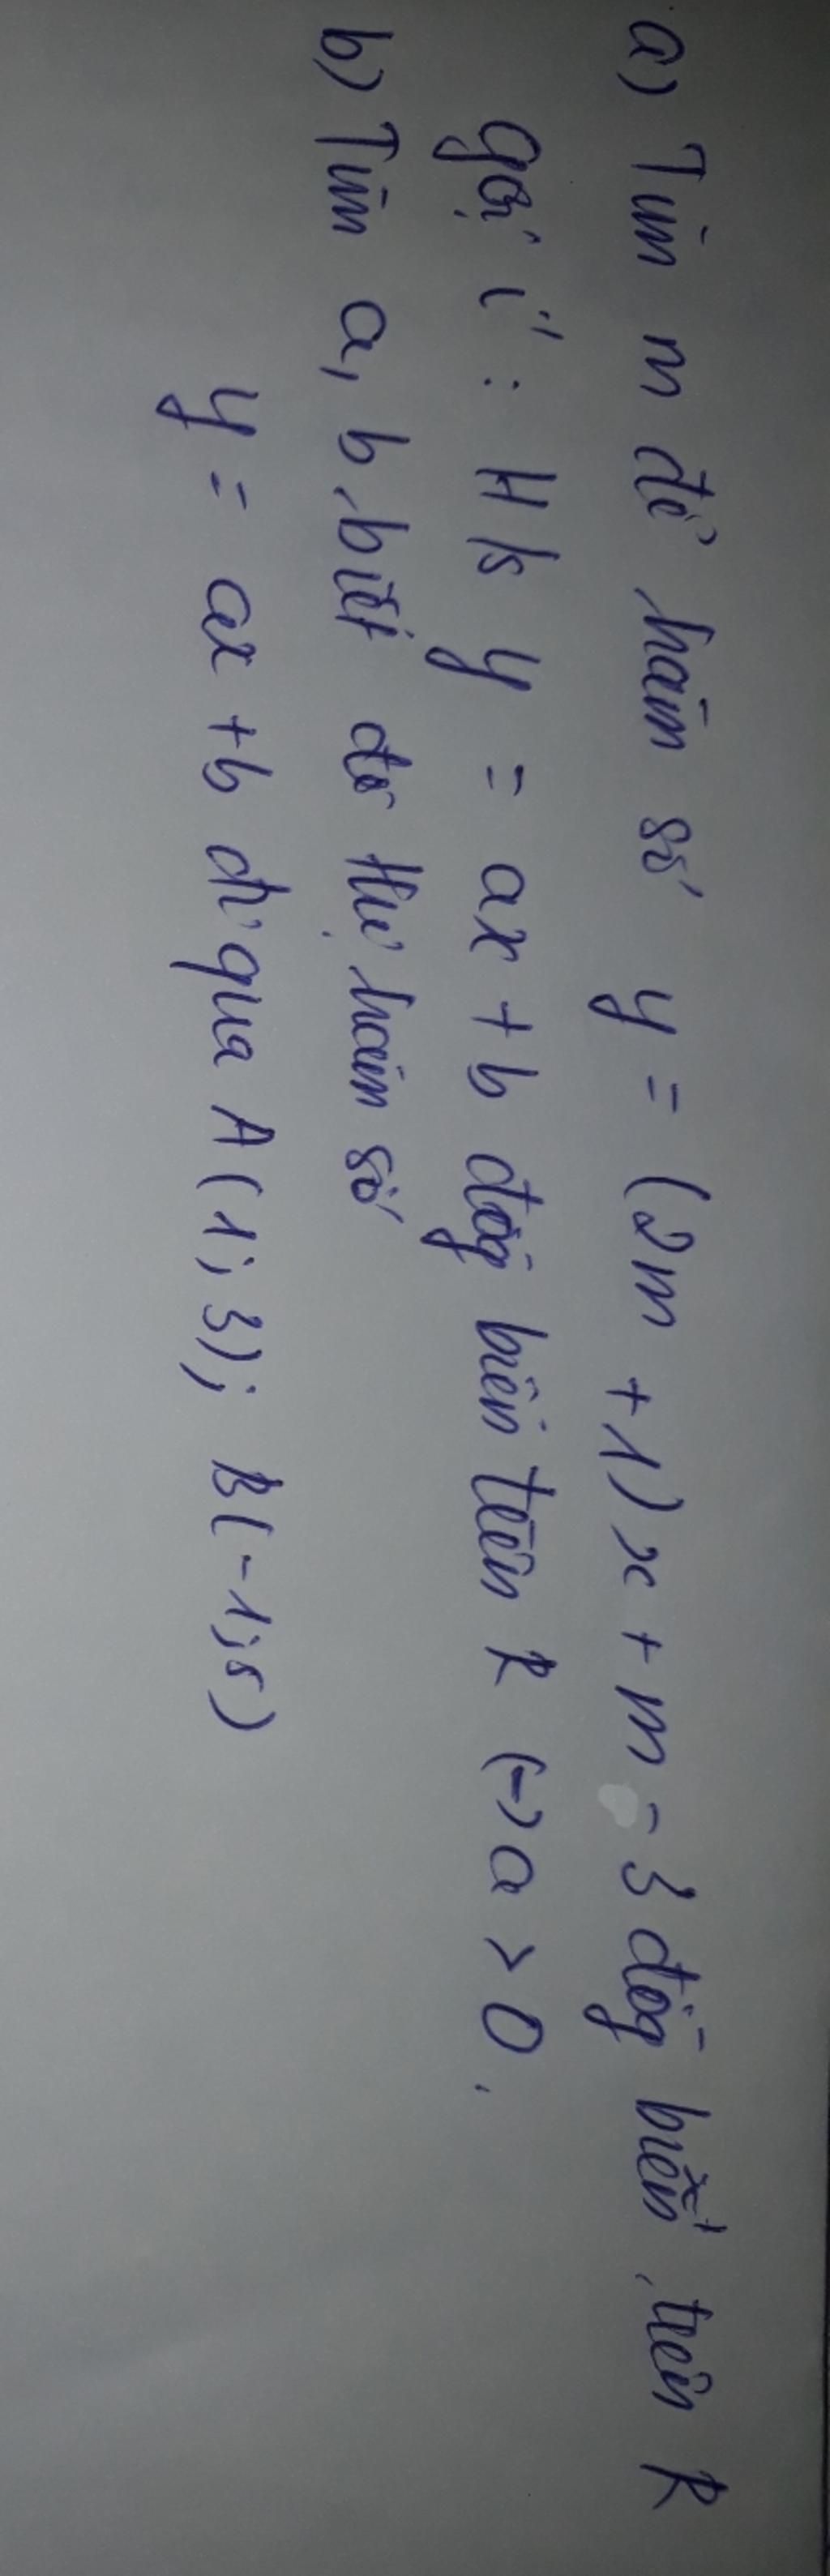 a) Tìm m để hàm số y = (2m + 1)x + m - 3 đồg biến trên R
gợi ý : H/s y = ax + b đồg biến trên R (-) a > 0.
b) Tìm a, b biết đồ thị hàm số
y = ax + b đi qua A(1; 3); B(-1; 5)